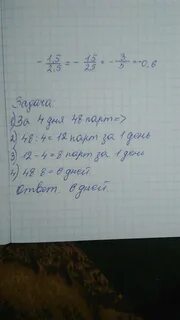 - 1.5/2.5 = - 15/25 = - 3/5 = -0,6
Задача
1) За 4 дня 48 парт =>
2) 48 : 4 = 12 парт за 1 день
3) 12 - 4 = 8 парт за 1 день
4) 48 8 = 6 дней
Ответ 6 дней.